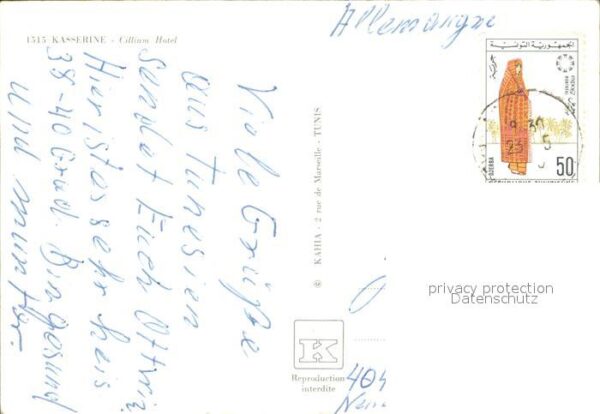 1515 KASSERINE - Cillium Hotel
Viele Grüße
aus Tunesien
sendet Euch
Hier ist es sehr heis
38-40 Grad. Bin gesund
und munter.
© KAHIA - 2 rue de Marseille - TUNIS
K
Reproduction
interdite
Allemangne
الجمهورية التونسية
DJERBA
50
23
5
privacy protection
Datenschutz
404